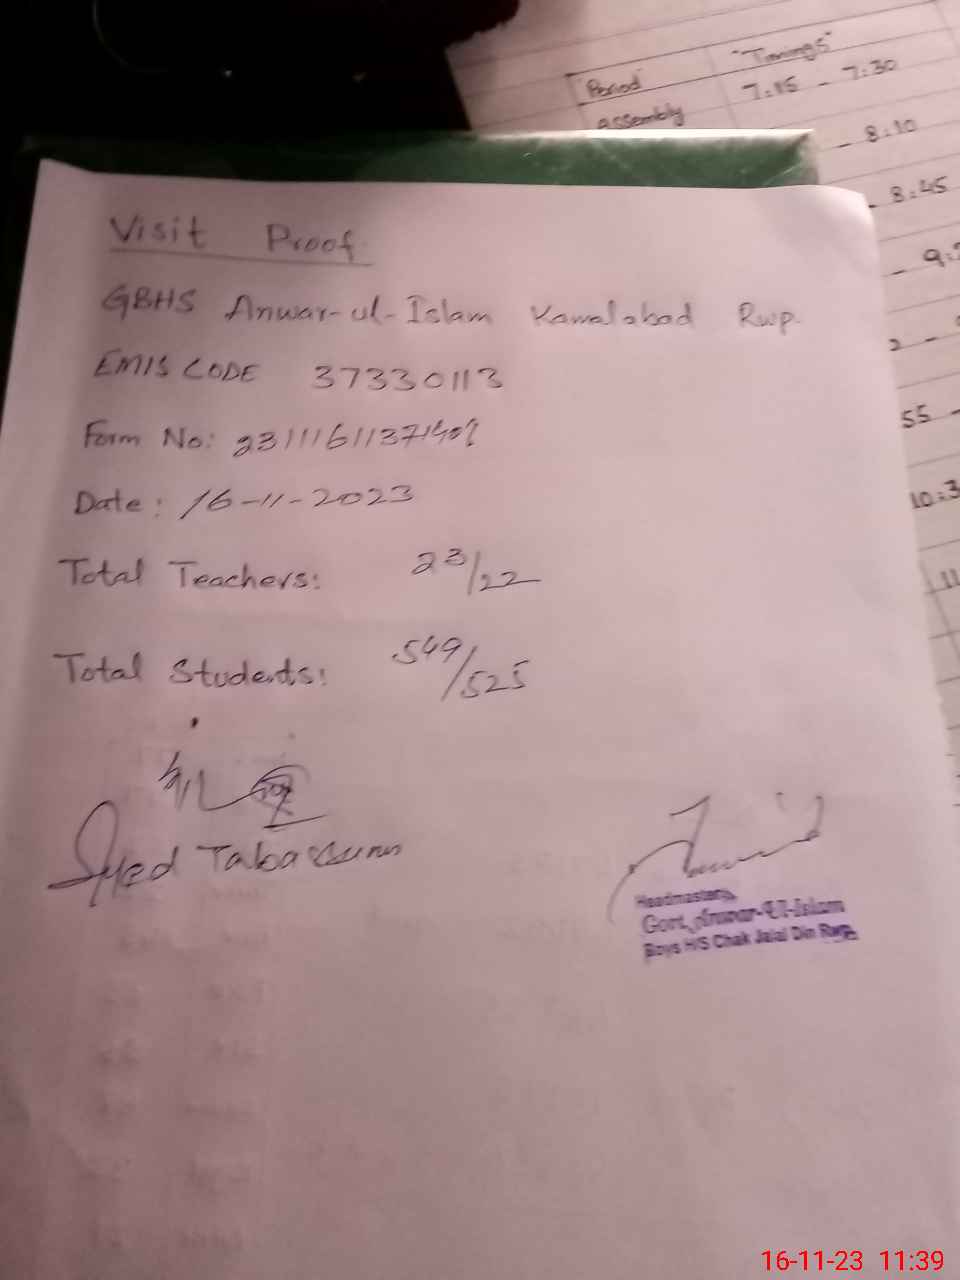 "Period" "Timings"
Assembly 7:15 - 7:30
- 8:10
- 8:45
- 9:
55 -
10:3
11
Visit Proof
GBHS Anwar-ul-Islam Kamalabad Rwp.
EMIS CODE 37330113
Form No:
Date: 16-11-2023
Total Teachers: 23/22
Total Students: 549/525
Syed Tabassum
Headmaster,
Govt. Anwar-Ul-Islam
Boys H/S Chak Jalal Din Rwp.
16-11-23 11:39